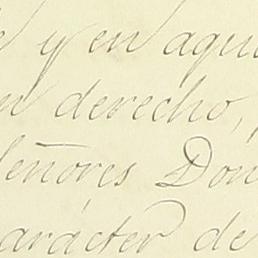 y en aqu
n derecho,
Señores Don
arácter de